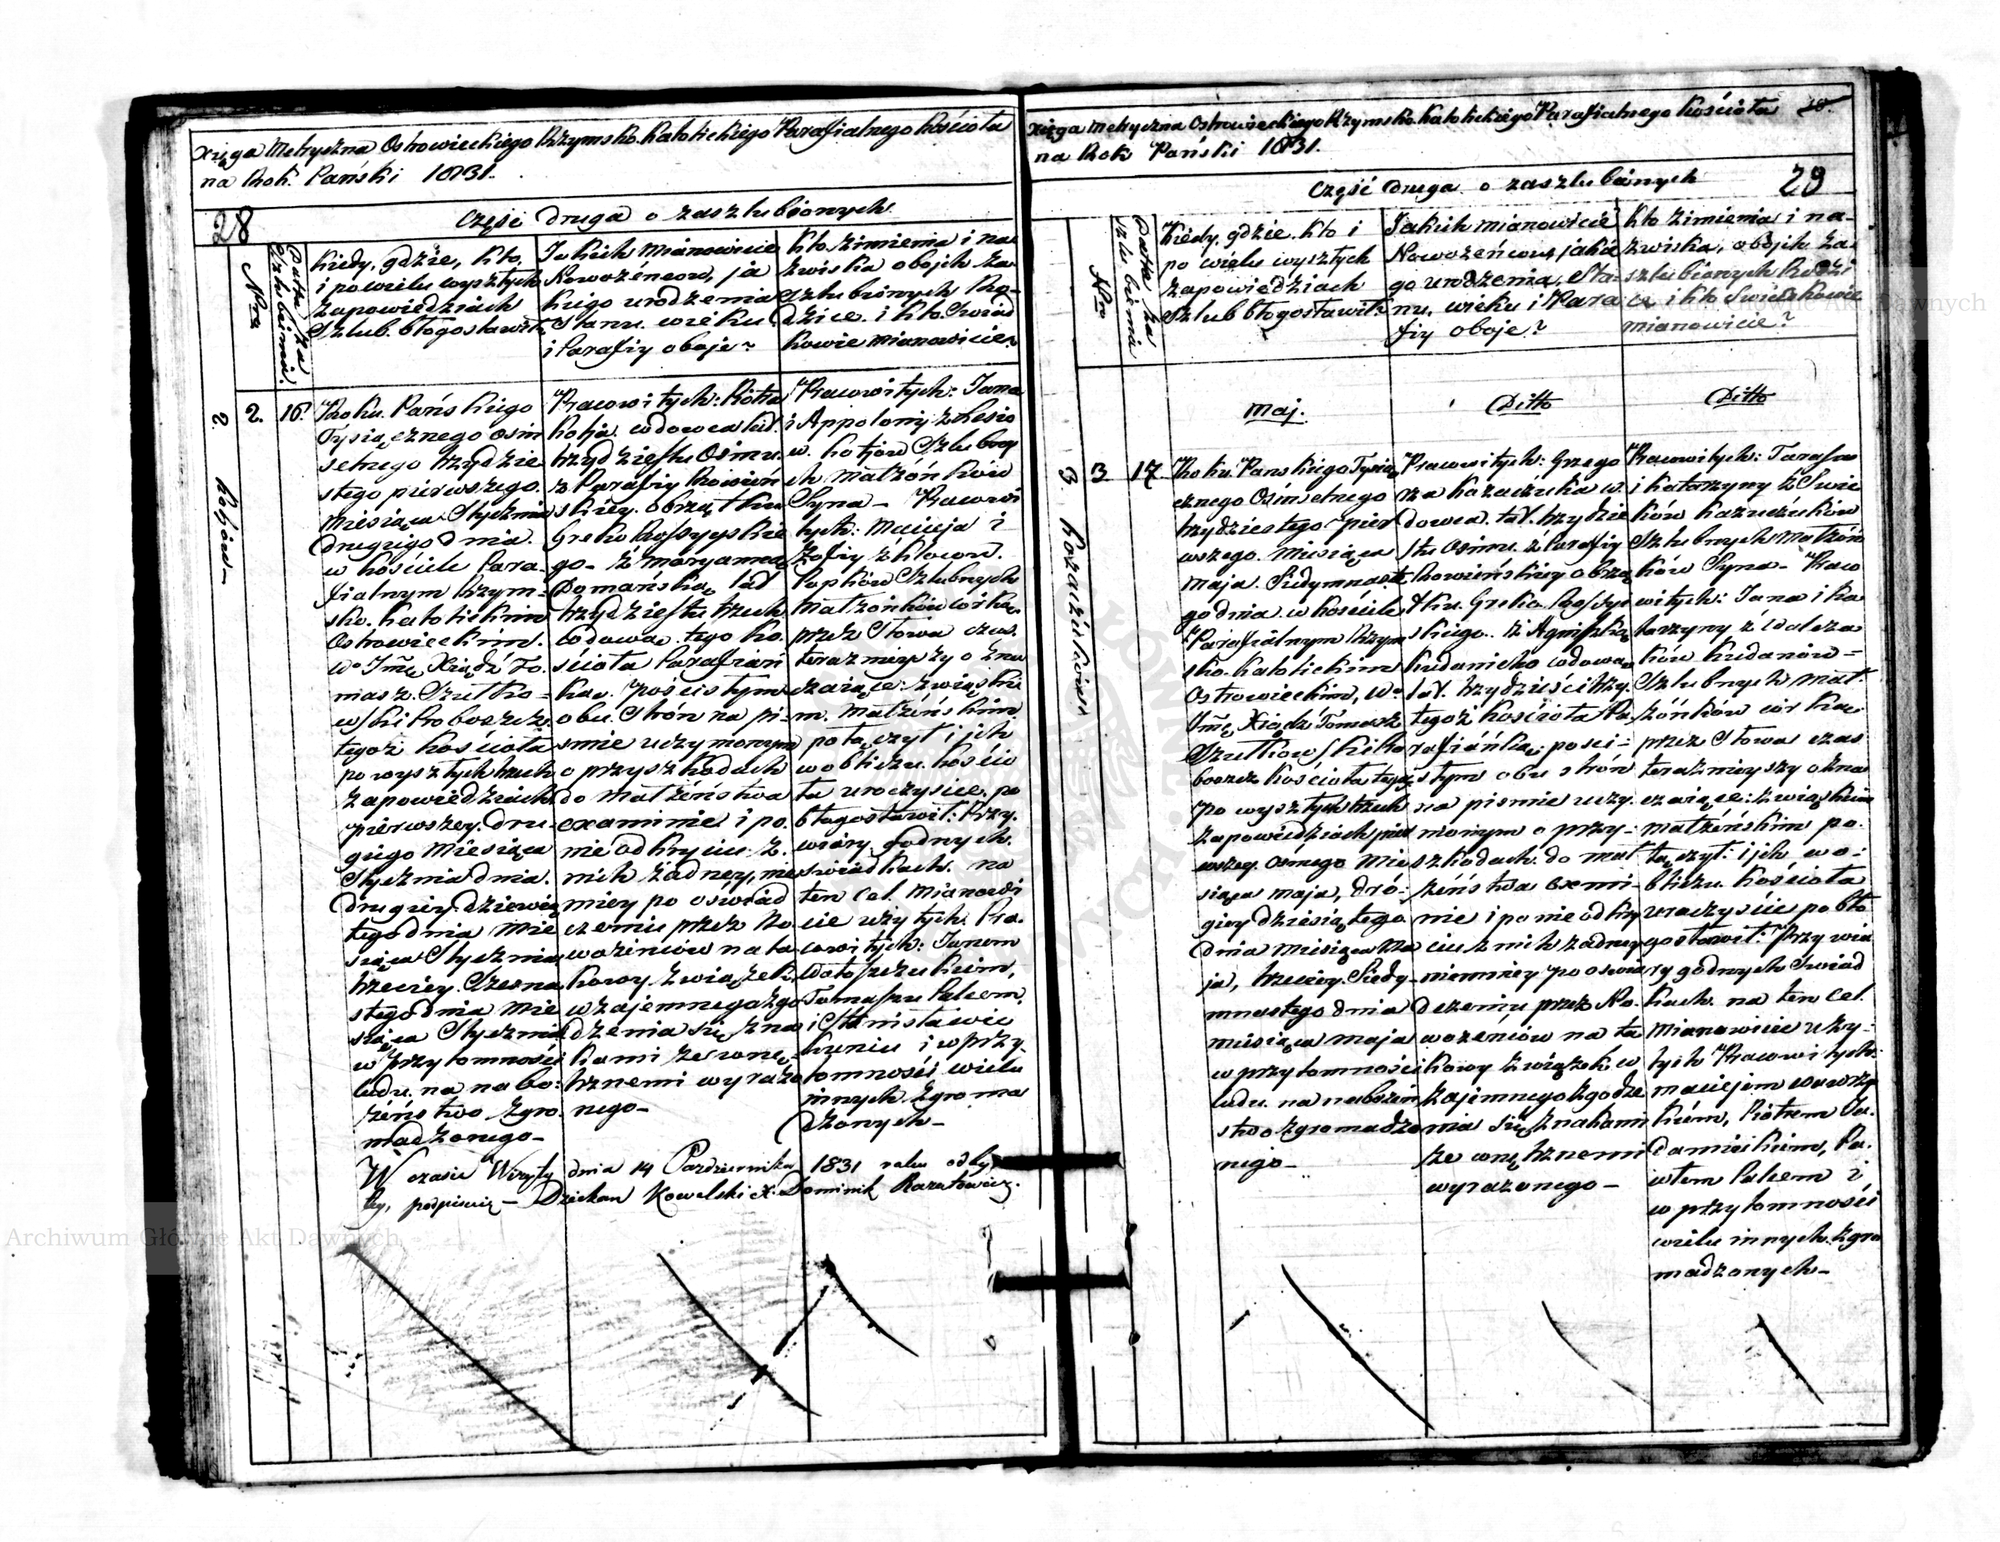 Xięga Metryczna Ostrowieckiego Rzymsko. Katolickiego Parafialnego Kościoła
na Rok. Pański 1831.
28
Część druga o zaszlubionych
Nro
Datta za
szlubienia
Kiedy, gdzie, kto,
i po wielu wyszłych
zapowiedziach
Szlub. błogosławił.
Jakich mianowicie
Nowożeńcow, ja
kiego urodzenia
Stanu. wieku
i Parafiy oboje?
Kto. z imienia i na
zwiska obojch za
szlubionych Ro-
dzice. i kto. Świad
kowie mianowicie?
2.
Kotjow-
2.
16.
Roku. Pańskiego
Tysiącznego osm
setnego trzydzie
stego pierwszego.
Miesiąca Stycznia
drugiego dnia.
w kościele Para-
fialnym Rzym-
sko. Katolickim
Ostrowieckim.
W. Jmć Xiądz To-
masz. Szutko-
wski Proboszcz
tegoż kościoła
po wyszłych trzech
zapowiedziach
pierwszey. dru-
giego Miesiąca
Stycznia dnia.
drugiey. dziewią
tego dnia Mie
siąca Stycznia
trzeciey. Szesna
stego dnia Mie
siąca Stycznia
w przytomności
ludu. na nabo:
żeństwo zgro-
madzonego-
Pracowitych: Piotra
Kotja. wdowca lat.
trzydziestu Osmu.
z Parafiy Kowień
skiey. obrządku
Greko Rossyyskie
go- z Maryanną
Domańską, lat
trzydziestu trzech
wdową. tego ko.
ścioła Parafian
ką. po ścisłym
obu. Strón na pi-
smie uczynionym
o przyszkodach
do Małżeństwa
examinie i po.
nie odkryciu. z.
nich żadney, nie
mniey po oświad
czeniu przez No
wożeńcow na ta
kowy związek.
wzajemnego zgo
dzenia się zna
kami zewnę-
trznemi wyrażo
nego-
Pracowitych: Jana
i Appolony z Lesio
w. Kotjow Szlubny
ch Małżonków
Syna- Pracowi
tych: Macieja i
Zofiy z Kłosow.
Popków Szlubnych
Małżonków córka,
przez Słowa czas.
teraznieyszy ozna
czaiące: związkiem
m. Małżeńskim
połączył i ich
w obliczu. kościo
ła uroczyscie. po
błogosławił: Przy.
wiary. godnych.
świadkach. na
ten cel. mianowi
cie użytych. Pra.
cowitych: Janem
Tomaszem Palcem,
i Stanisławie
Kuniu i w przy
tomności wielu
innych. zgroma
dzonych-
W czasie Wizyty dnia 14 Października 1831 roku odby
tey, podpisuię- Dziekan Kowelski X. Dominik Rozutowicz.
Xięga Metryczna Ostrowieckiego Rzymsko. Katolickiego Parafialnego Kościoła
na Rok Pański 1831.
Część druga o zaszlubionych
29
Nro
Datta za
szlubienia
Kiedy, gdzie. kto i
po wielu wyszłych
zapowiedziach
Szlub błogosławił
Jakich mianowicie
Nowożeńcow, jakie
go urodzenia, Sta-
nu. wieku i Para
fiy oboje?
Kto z imienia i na-
zwiska, obojch za-
szlubionych Rodzi
ce i kto Świadkowie
mianowicie?
Maj.
Ditto
Ditto
3
Kozaczuków
3
17.
Roku. Pańskiego Tysią
cznego Osmsetnego
trzydziestego pier
wszego. Miesiąca
Maja. Siedymnaste
go dnia. w kościele
Parafialnym Rzym
sko. Katolickim
Ostrowieckim, W.
Jmć Xiądz Tomasz
Szutkowski Pro
boszcz kościoła tegoż
po wyszłych trzech
zapowiedziach pier
wszey. osmego Mie
siąca Maja, dru:
giey dziesiątego
dnia Miesiąca Ma
ja, trzeciey. Siedy-
mnastego dnia
Miesiąca Maja
w przytomności
ludu. na nabożeń
stwo zgromadzo
nego-
Pracowitych: Grzego
rza Kozaczuka w.
dowca. lat. trzydzie
stu Osmu. z Parafiy
Kowieńskiey obrzą
dku. Greko Rossyy
skiego. z Agnieszką
Kudanicho wdową.
lat. trzydzieści trzy.
tegoż kościoła Pa
rafiánką: po ści-
słym obu strón
na pismie uczy.
nionym o przy-
szkodach. do mał
żeństwa exami-
nie i po nie odkry
ciu z nich żadney
niemniey po oswia
dczeniu przez No.
wożeńcow na ta
kowy związek w
zajemnego zgodze
nia się znakami
ze wnętrznemi
wyrażonego-
Pracowitych: Tarasa
i Katarzyny z Swie
ków Kozaczuków
Szlubnych Małżón
ków Syna- Praco
witych: Jana i Ka
tarzyny z Walcza
ków Kudanów-
Szlubnych Mał.
żónków córka.
przez Słowa czas
teraznieyszy ozna
czaiące: związkiem
małżeńskim po.
łączył: i ich w o:
bliczu. kościoła
uraczyście pobło
gosławił: Przy wia
ry godnych Świad
kach na ten cel.
Mianowicie uży-
tych Pracowitych:
Maciejem Wawrzy
Kiem, Piotrem Ja.
włem Palcem i
w przytomności
wielu innych. zgro
madzonych-
Archiwum Główne Akt Dawnych